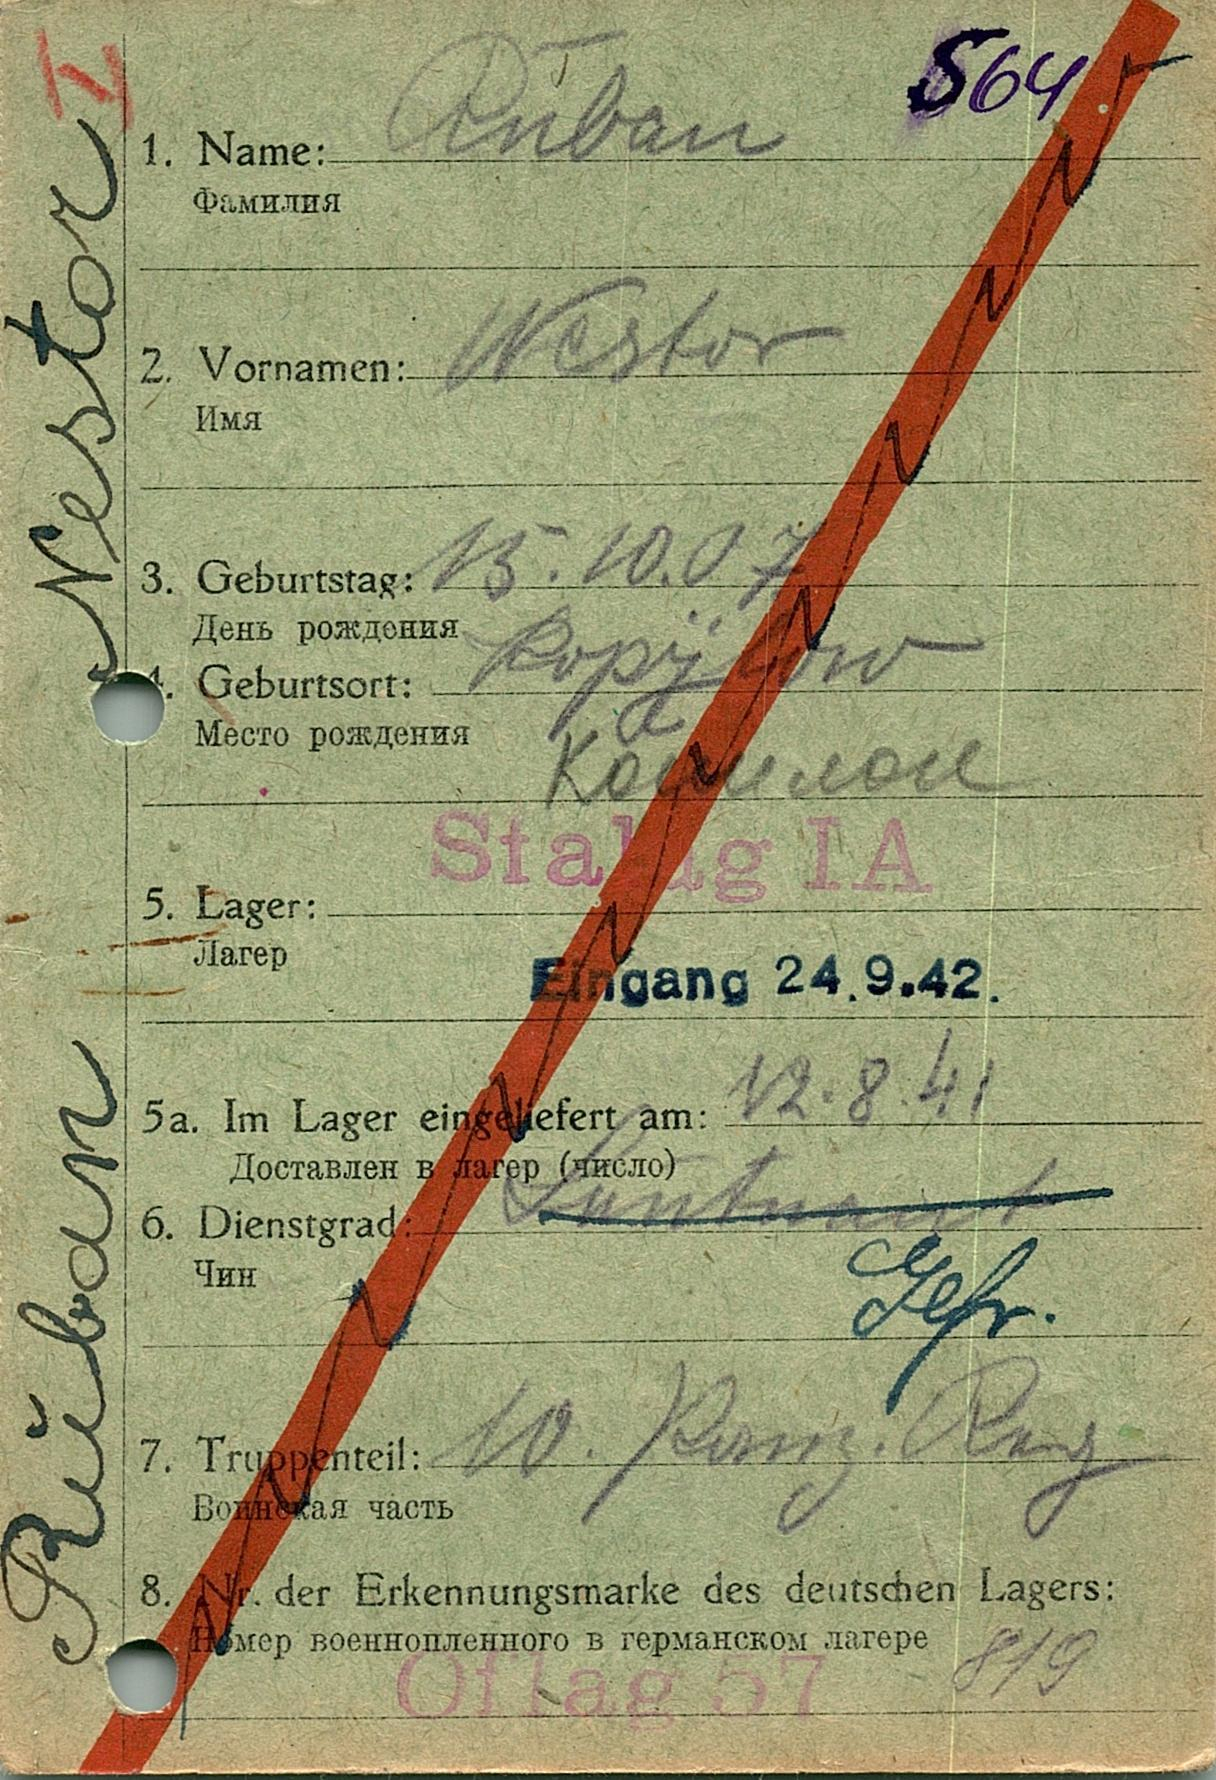 IV
564
Rŭban
1. Name:
Фамилия
Nestor
2. Vornamen:
Имя
15.10.07
3. Geburtstag:
День рождения
4. Geburtsort:
Место рождения
Stalag IA
5. Lager:
Лагер
Eingang 24.9.42.
5a. Im Lager eingeliefert am: 12.8.41
Доставлен в лагер (число)
6. Dienstgrad: Leutnant
Чин
Gefr.
7. Truppenteil: 10. Panz. Reg
Воинская часть
8. Nr. der Erkennungsmarke des deutschen Lagers:
Номер военнопленного в германском лагере 819
Oflag 57
Rŭban Nestor